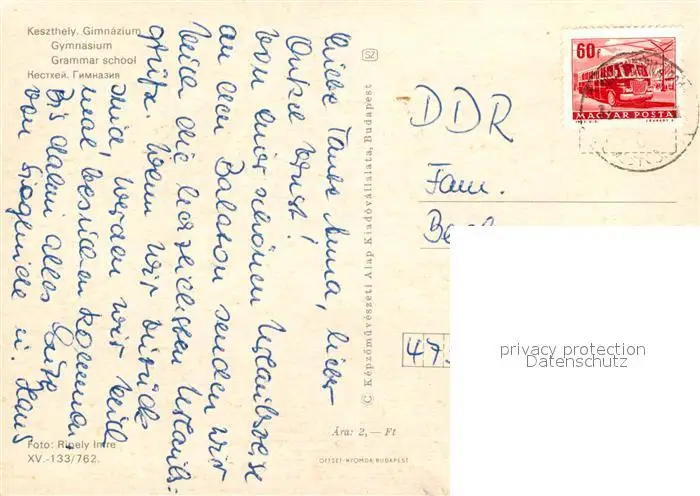 Keszthely. Gimnázium
Gymnasium
Grammar school
Кестхей. Гимназия
Liebe Tante Anna, lieber
Onkel Ernst!
Von einer schönen Urlaubsreise
an den Balaton senden wir
Euch die herzlichsten Urlaubs-
grüße. Wenn wir zurück
sind, werden wir Euch
mal besuchen kommen.
Bis dahin alles Gute
von Sieglinde u. Hans
Foto: Ripely Imre
XV.-133/762.
SZ
© Képzőművészeti Alap Kiadóvállalata, Budapest
Ára: 2,— Ft
OFFSET-NYOMDA BUDAPEST
60f
MAGYAR POSTA
DDR
Fam.
47
privacy protection
Datenschutz